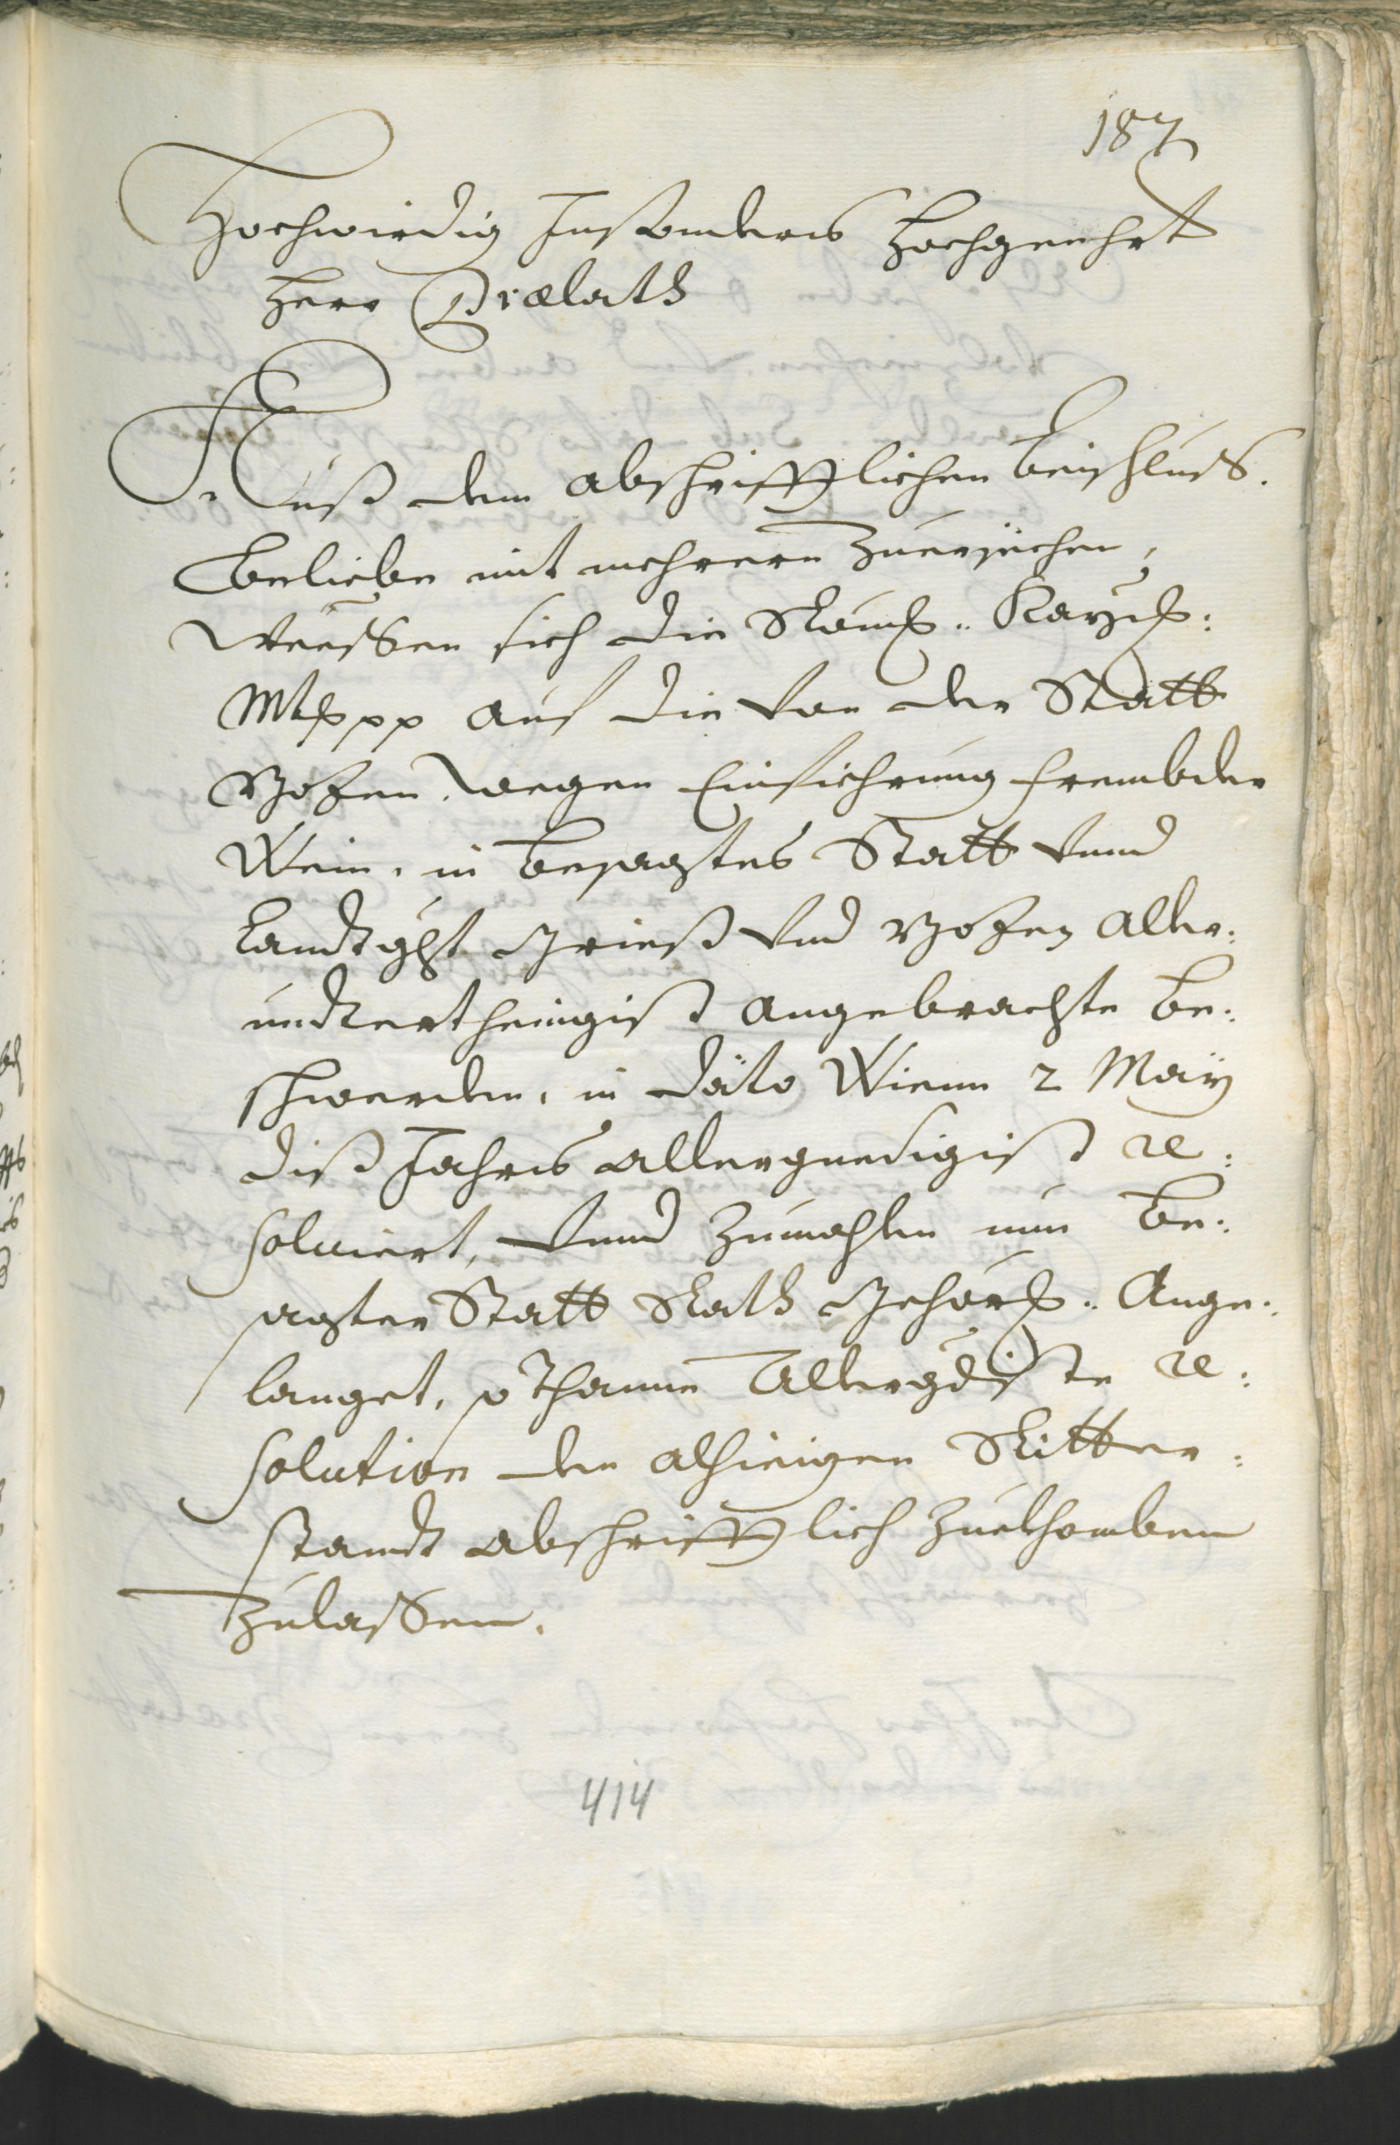 187
Hochwirdig Insonders hochgeehrt
Herr Prælath
Auß dem abschrifftlichen Beischluss.
Beliebe mit mehrerm zuersechen,
wessen sich die Röml: Kaysl:
Mt: auf die von der Statt
Bozen, wegen Einfiehrung frembder
Wein, in besagtes Statt vnnd
Landtght Grieß vnd Bozen aller:
undterthenigist angebrachte Be:
schwerden, in dato Wienn 2 May
diß Jahrs allergnedigist re:
solviert, vnnd zumahlen nun be:
sagter Statt Rath gehorl: Ange:
langet, sothanne Allergdiste re:
solution dem alhieigen Ritter:
standt abschrifftlich zuekhomben
zulassen.
414